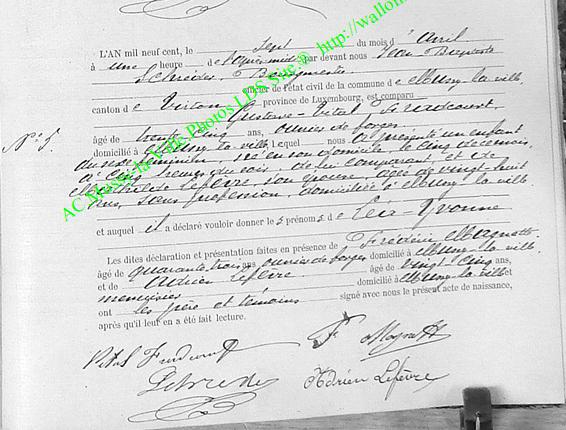 L'AN mil neuf cent, le Sept du mois d'Avril
à une heure de l'après midi par devant nous Jean Baptiste
Schréder, Bourgmestre
officier de l'état civil de la commune de Mussy-la-ville
canton de Virton, province de Luxembourg, est comparu
Gustave-Vital
N° 5.
âgé de trente cinq ans, ouvrier de forges
domicilié à Mussy-la-ville, lequel nous a présenté un enfant
du sexe féminin, né en son domicile le cinq de ce mois,
à cinq heures du soir, de lui comparant, et de
Lefèvre, son épouse, âgée de vingt huit
ans, sans profession, domiciliée à Mussy-la-ville
et auquel il a déclaré vouloir donner le s prénoms de Yvonne
Les dites déclaration et présentation faites en présence de Frédéric Magnette
âgé de quarante trois ans ouvrier de forges domicilié à Mussy-la-ville
et de Adrien Lefèvre âgé de vingt-cinq ans,
domicilié à Mussy-la-ville et
ont les père et témoins signé avec nous le présent acte de naissance,
après qu'il leur en a été fait lecture.
Vital F
Schreder Adrien Lefèvre
AC Musson-la-Ville Photos LPS Site © http://wallon